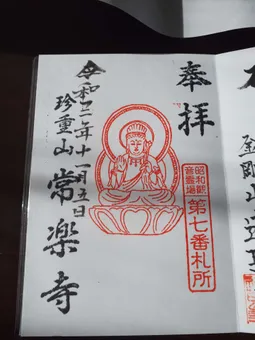 奉拝
昭和観
音霊場
第七番札所
令和二年十一月五日
珍重山
常楽寺
金剛山